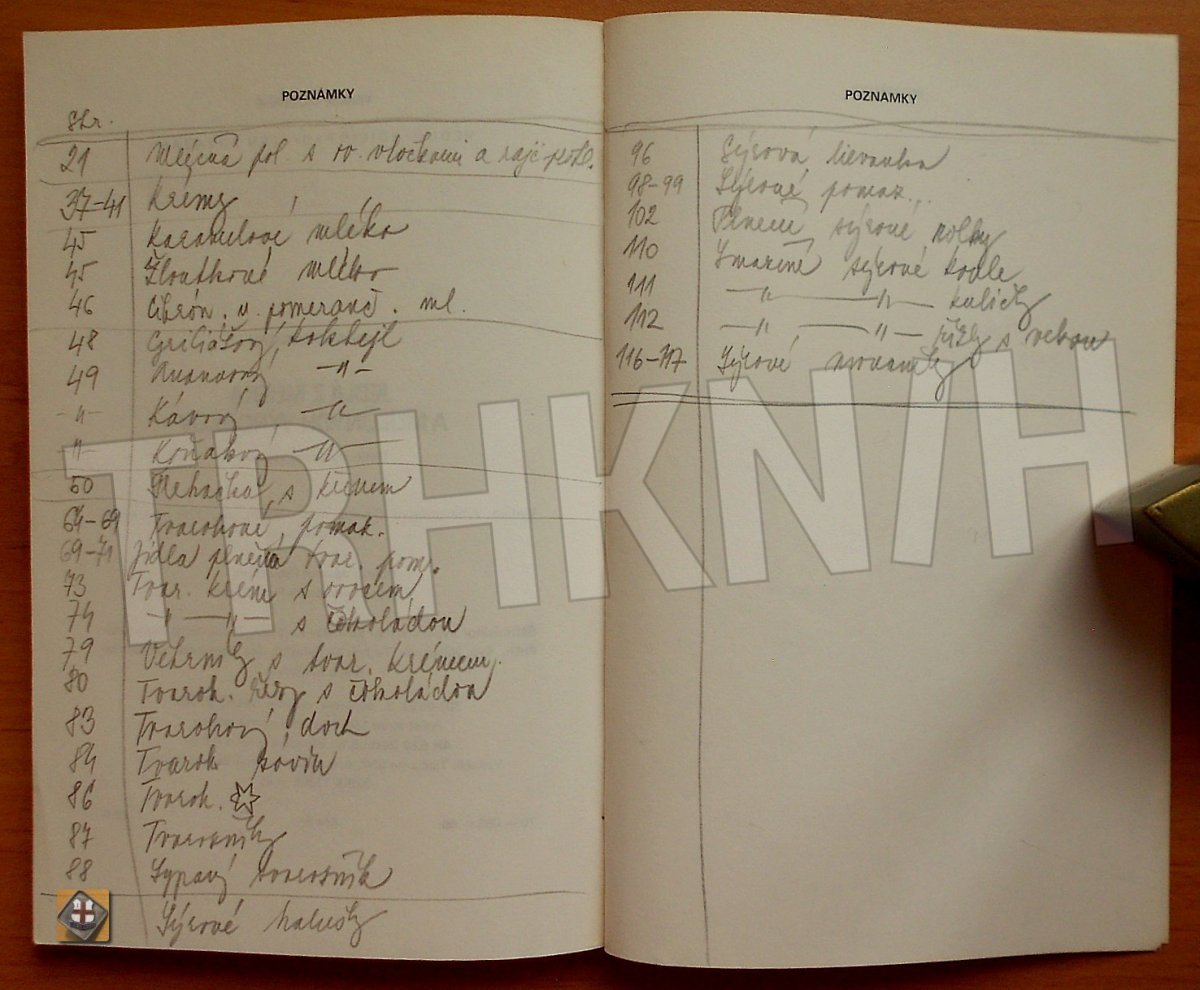 POZNÁMKY
Str.
21 Mléčná pol. s ov. vločkami a rajč.
37-41 Krémy
45 Karamelové mléko
45 Žloutkové mléko
46 Citrón. a pomeranč. ml.
48 Griliášový koktejl
49 Ananasový -"-
-"- Kávový -"-
-"- Koňakový -"-
50 Šlehačka s křenem
64-69 Tvarohové pomaz.
69-71 Jídla plněná tvar. pom.
73 Tvar. krém s ovocem
74 -"- -"- s čokoládou
79 Větrníky s tvar. krémem
80 Tvaroh. řezy s čokoládou
83 Tvarohový dort
84 Tvaroh závin
86 Tvaroh.
87 Tvarožníky
88 Sypaný tvarožník
Sýrové halušky
POZNÁMKY
96 Sýrová
98-99 Sýrové pomaz.
102 Plněné sýrové rolky
110 Smažené sýrové koule
111 -"- -"- kuličky
112 -"- -"- řízky s
116-117 Sýrové
TRHKNIH